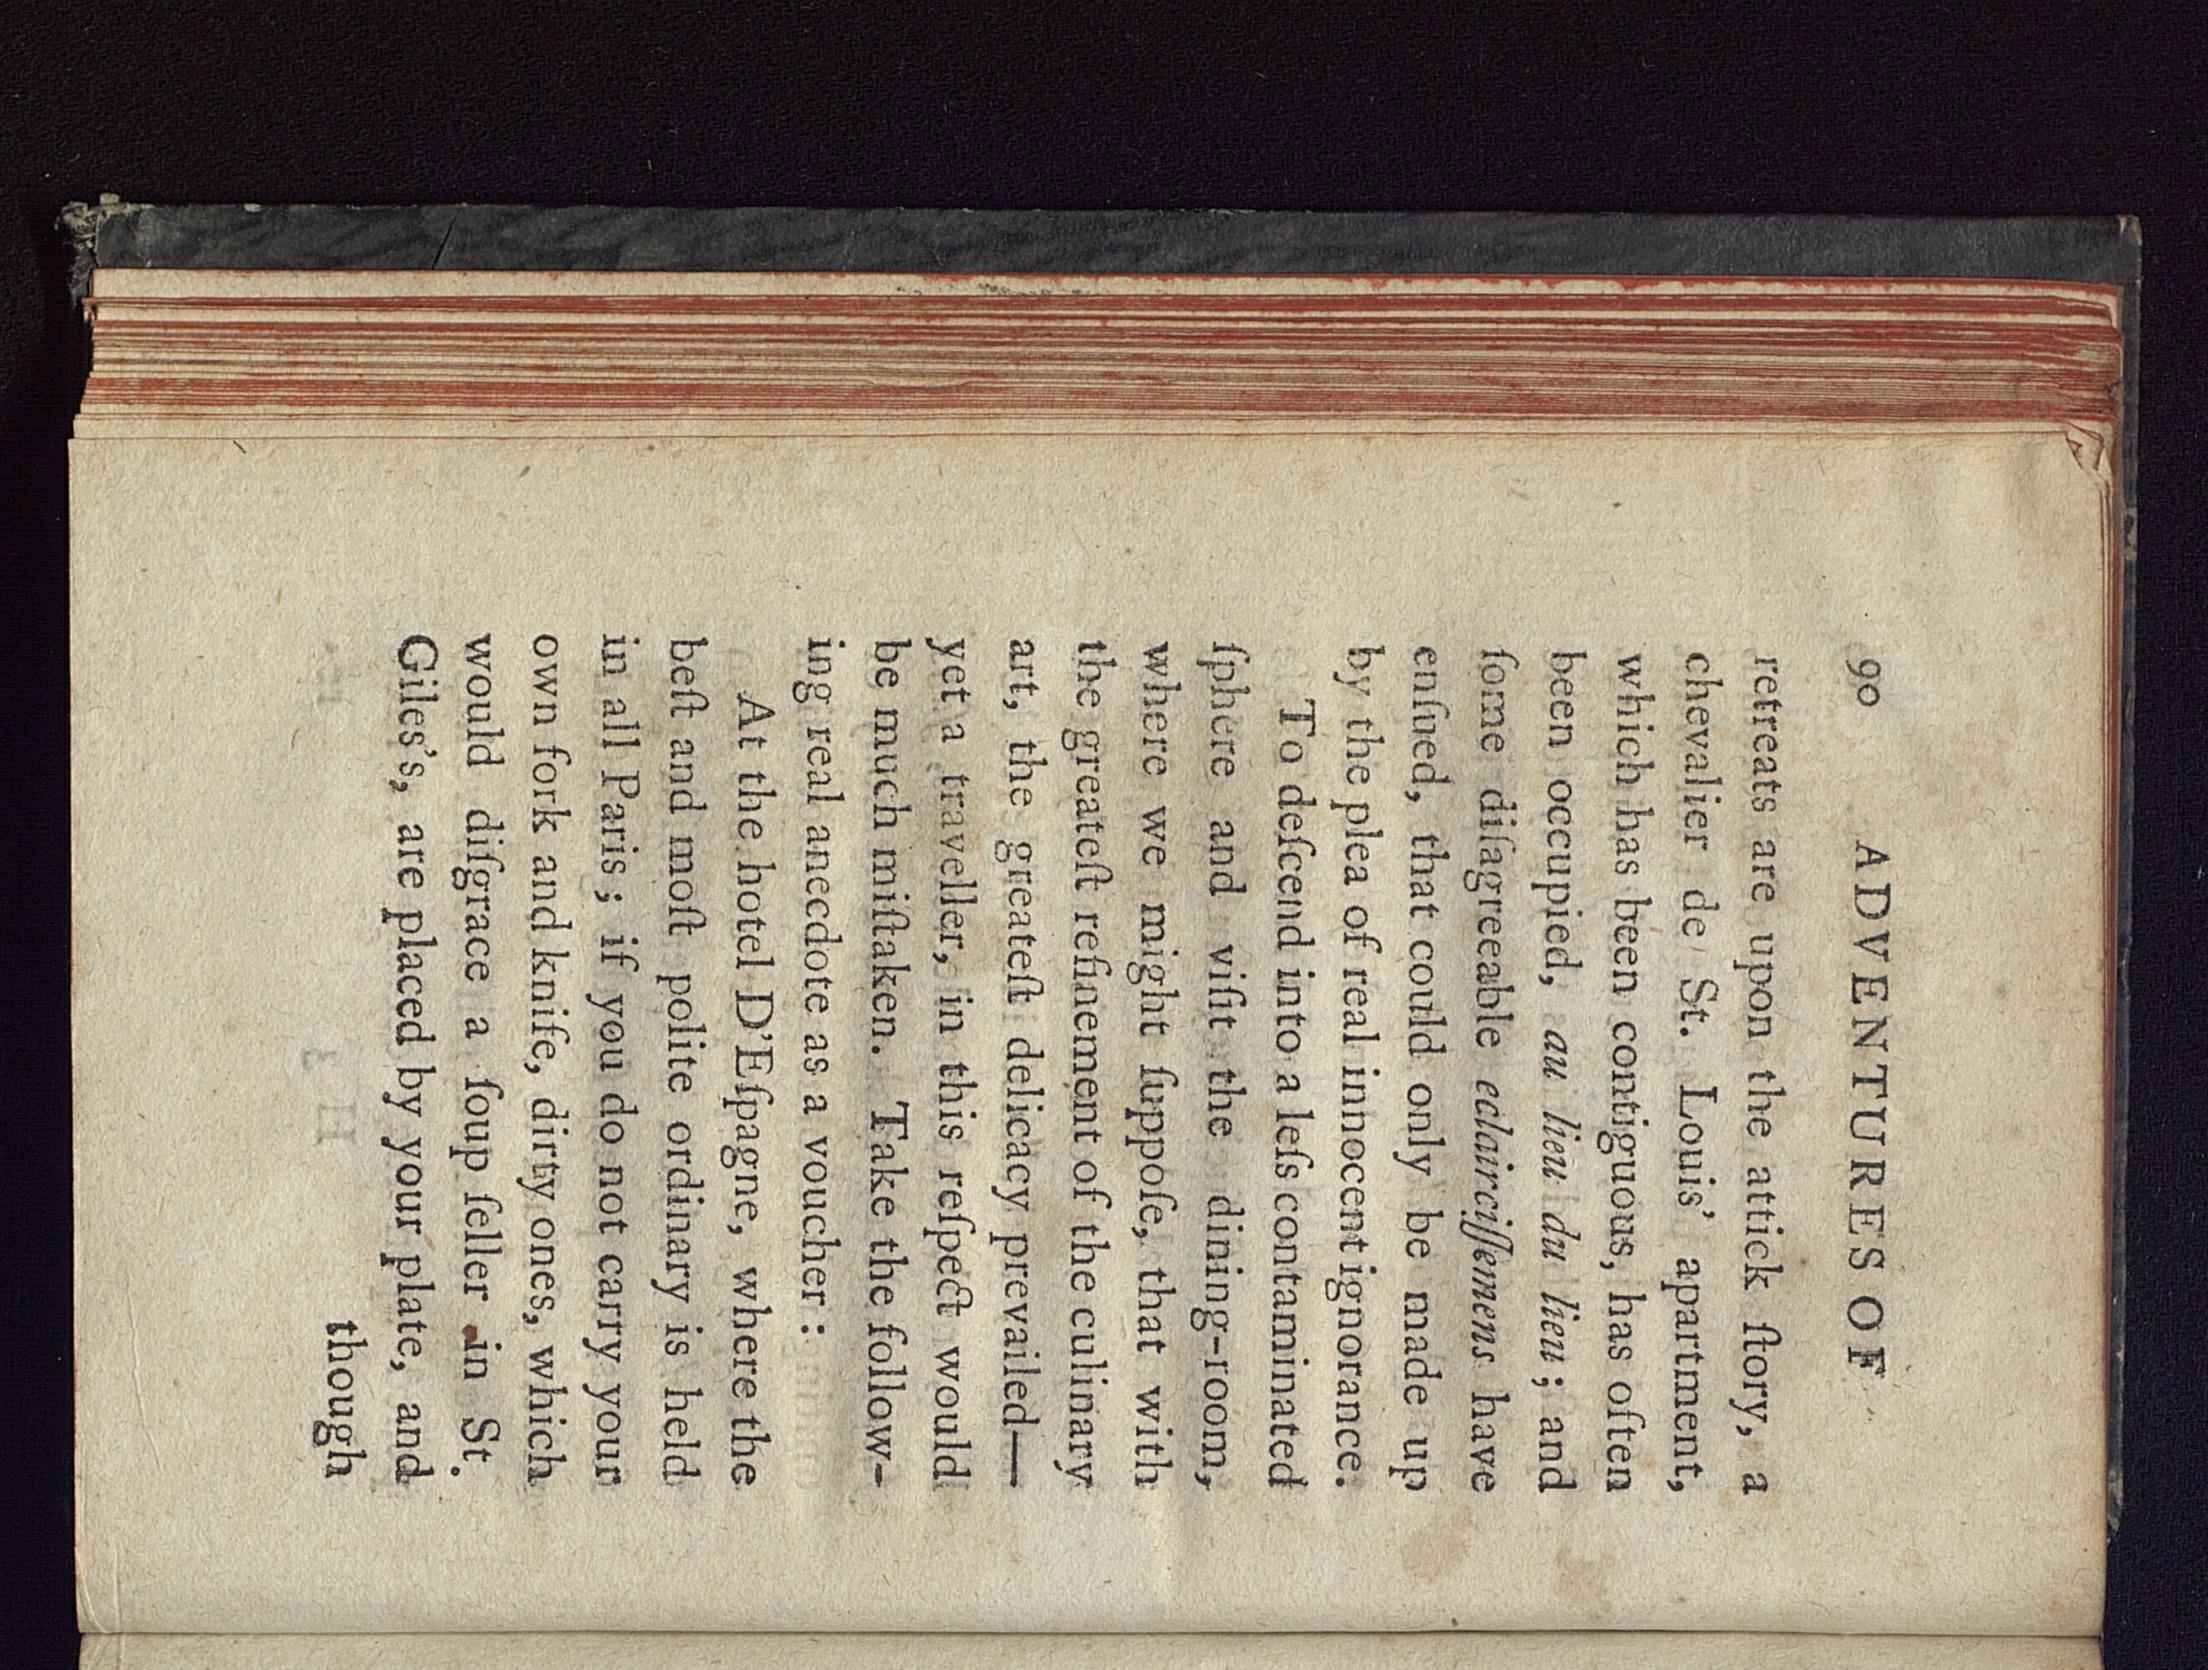 90 ADVENTURES OF
retreats are upon the attick ſtory, a
chevalier de St. Louis' apartment,
which has been contiguous, has often
been occupied, au lieu du lieu; and
ſome diſagreeable eclairciſſemens have
enſued, that could only be made up
by the plea of real innocent ignorance.
To deſcend into a leſs contaminated
ſphere and viſit the dining-room,
where we might ſuppoſe, that with
the greateſt refinement of the culinary
art, the greateſt delicacy prevailed—
yet a traveller, in this reſpect would
be much miſtaken. Take the follow-
ing real anecdote as a voucher:
At the hotel D'Eſpagne, where the
beſt and moſt polite ordinary is held
in all Paris; if you do not carry your
own fork and knife, dirty ones, which
would diſgrace a ſoup ſeller in St.
Giles's, are placed by your plate, and
though